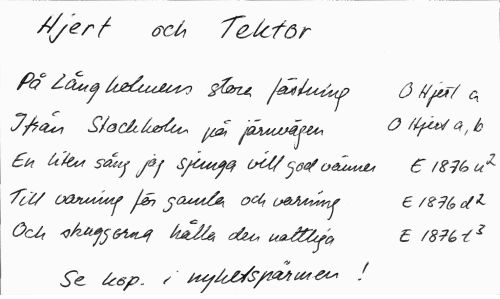 Hjert och Tektor
På Långholmens stora fästning O Hjert a
Ifrån Stockholm på järnvägen O Hjert a, b
En liten sång jag sjunga vill god vänner E 1876 u²
Till varning för gamla och varning E 1876 d²
Och skuggorna hålla den nattliga E 1876 t³
Se kop. i nyhetspärmen !